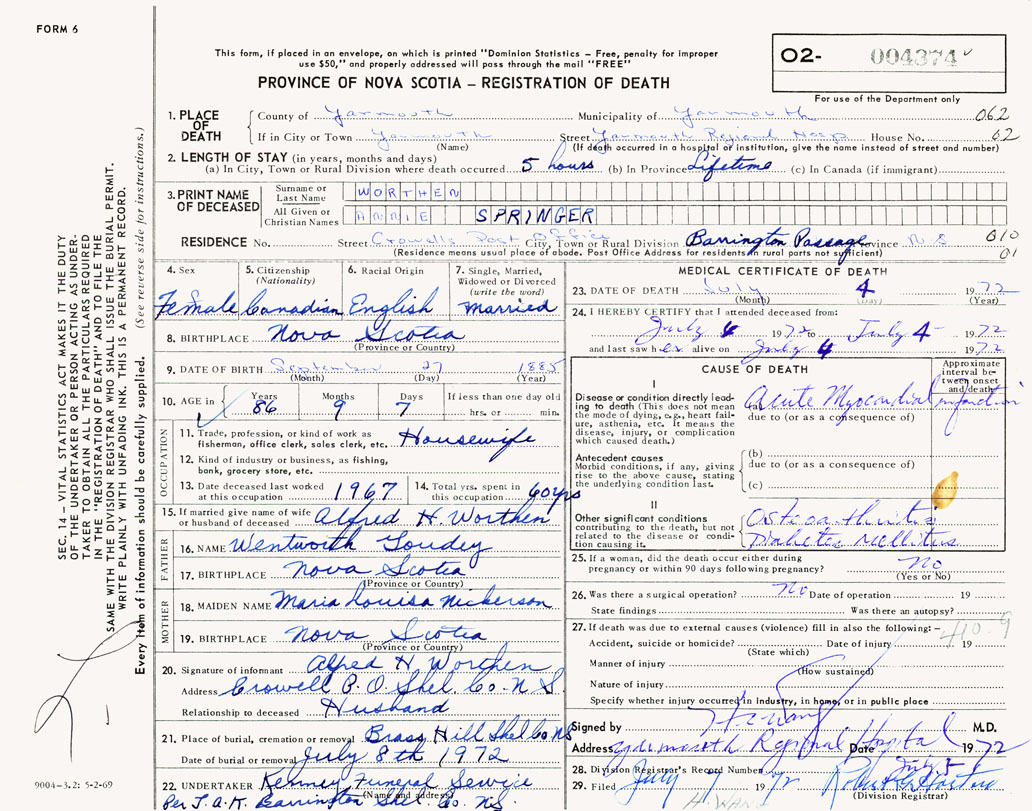 FORM 6
This form, if placed in an envelope, on which is printed "Dominion Statistics – Free, penalty for improper
use $50," and properly addressed will pass through the mail "FREE"
PROVINCE OF NOVA SCOTIA – REGISTRATION OF DEATH
O2- 004374
For use of the Department only
1. PLACE OF DEATH
County of Yarmouth Municipality of Yarmouth 062
If in City or Town Yarmouth Street Yarmouth Regional Hosp House No. 62
(Name) (If death occurred in a hospital or institution, give the name instead of street and number)
2. LENGTH OF STAY (in years, months and days)
(a) In City, Town or Rural Division where death occurred 5 hours (b) In Province Lifetime (c) In Canada (if immigrant)
3. PRINT NAME OF DECEASED
Surname or Last Name WORTHEN
All Given or Christian Names ANNIE SPRINGER
RESIDENCE No. Street Crowells Post Office City, Town or Rural Division Barrington Passage Province N S 010
(Residence means usual place of abode. Post Office Address for residents in rural parts not sufficient) 01
4. Sex Female
5. Citizenship (Nationality) Canadian
6. Racial Origin English
7. Single, Married, Widowed or Divorced (write the word) Married
8. BIRTHPLACE Nova Scotia
(Province or Country)
9. DATE OF BIRTH September 27 1885
(Month) (Day) (Year)
10. AGE in Years 86 Months 9 Days 7 If less than one day old
hrs. or min.
OCCUPATION
11. Trade, profession, or kind of work as
fisherman, office clerk, sales clerk, etc. Housewife
12. Kind of industry or business, as fishing,
bank, grocery store, etc.
13. Date deceased last worked
at this occupation 1967
14. Total yrs. spent in
this occupation 60 yrs
15. If married give name of wife
or husband of deceased Alfred H. Worthen
FATHER
16. NAME Wentworth Goudey
17. BIRTHPLACE Nova Scotia
(Province or Country)
MOTHER
18. MAIDEN NAME Maria Louisa Nickerson
19. BIRTHPLACE Nova Scotia
(Province or Country)
20. Signature of informant Alfred H. Worthen
Address Crowell P.O. Shel. Co. N S.
Relationship to deceased Husband
21. Place of burial, cremation or removal Brass Hill Shel Co NS
Date of burial or removal July 8th 1972
22. UNDERTAKER Kenney Funeral Service
(Name and address)
Per Barrington Shel. Co. NS.
MEDICAL CERTIFICATE OF DEATH
23. DATE OF DEATH July 4 1972
(Month) (Day) (Year)
24. I HEREBY CERTIFY that I attended deceased from:
July 4 1972 to July 4 1972
and last saw her alive on July 4 1972
CAUSE OF DEATH
Approximate interval between onset and/death
I
Disease or condition directly leading to death (This does not
mean the mode of dying, e.g., heart failure, asthenia, etc. It means the
disease, injury, or complication
which caused death.)
(a) Acute Myocardial infarction
due to (or as a consequence of)
Antecedent causes
Morbid conditions, if any, giving
rise to the above cause, stating
the underlying condition last.
(b)
due to (or as a consequence of)
(c)
II
Other significant conditions
contributing to the death, but not
related to the disease or condition
causing it.
Osteoarthritis
Diabetes Mellitus
25. If a woman, did the death occur either during
pregnancy or within 90 days following pregnancy? No
(Yes or No)
26. Was there a surgical operation? No Date of operation 19
State findings Was there an autopsy?
27. If death was due to external causes (violence) fill in also the following: – 410.9
Accident, suicide or homicide? Date of injury 19
(State which)
Manner of injury
(How sustained)
Nature of injury
Specify whether injury occurred in industry, in home, or in public place
Signed by H. Wang M.D.
Address Yarmouth Regional Hospital Date 1972
28. Division Registrar's Record Number
29. Filed July 19 72
(Division Registrar)
H. WANG
SEC. 14 – VITAL STATISTICS ACT MAKES IT THE DUTY
OF THE UNDERTAKER OR PERSON ACTING AS UNDERTAKER
TO OBTAIN ALL THE PARTICULARS REQUIRED
IN THE "REGISTRATION OF DEATH" AND TO FILE THE
SAME WITH THE DIVISION REGISTRAR WHO SHALL ISSUE THE BURIAL PERMIT.
WRITE PLAINLY WITH UNFADING INK. THIS IS A PERMANENT RECORD.
Every item of information should be carefully supplied. (See reverse side for instructions.)
9004-3.2: 5-2-69